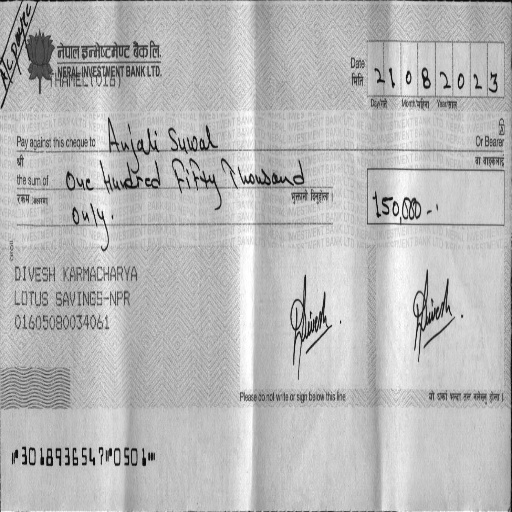 A/C PAYEE
नेपाल इन्भेष्टमेण्ट बैंक लि.
NEPAL INVESTMENT BANK LTD.
THAMEL (016)
Date
मिति
21082023
Day/गते Month/महिना Year/साल
Pay against this cheque to Anjali Suwal
Or Bearer
श्री
वा वाहकलाई
the sum of One Hundred Fifty Thousand
रकम (अक्षरमा)
भुक्तानी दिनुहोला ।
only.
150,000-.
DIVESH KARMACHARYA
LOTUS SAVINGS-NPR
01605080034061
Divesh.
Divesh.
Please do not write or sign below this line
⑈30189365471⑈0501⑈